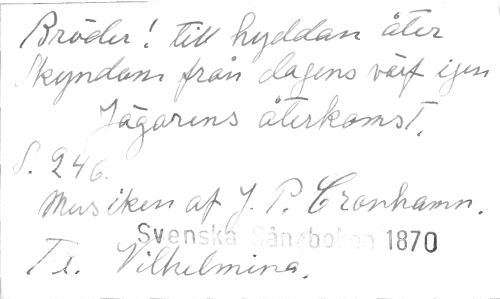 Bröder! till hyddan åter
Skyndom från dagens värf igen
Jägarens återkomst.
S. 246.
Musiken af J. P. Cronhamn.
Svenska Sångboken 1870
Tr. Vilhelmina.